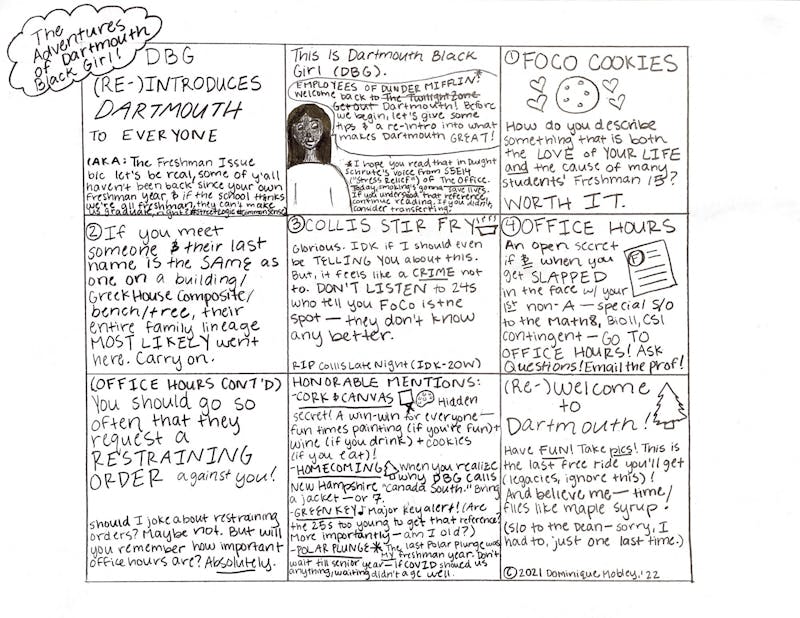 The
Adventures
of Dartmouth
Black Girl!
DBG
(RE-)INTRODUCES
DARTMOUTH
TO EVERYONE
(AKA: The Freshman Issue
b/c let's be real, some of y'all
haven't been back since your own
freshman year & if the school thinks
we're all freshmen, they can't make
us graduate, right?
This is Dartmouth Black
Girl (DBG).
EMPLOYEES OF DUNDER MIFFLIN!*
Welcome back to The Twilight Zone
Get Out Dartmouth! Before
we begin, let's give some
tips & a re-intro into what
makes Dartmouth GREAT!
*I hope you read that in Dwight
Schrute's voice from S5E14
("Stress Relief") of The Office.
Today, smoking's gonna save lives.
If you understood that reference,
continue reading. If you didn't,
consider transferring.
① FOCO COOKIES
How do you describe
something that is both
the LOVE of YOUR LIFE
and the cause of many
students' Freshman 15?
WORTH IT.
② If you meet
someone & their last
name is the SAME as
one on a building/
Greek House Composite/
bench/tree, their
entire family lineage
MOST LIKELY went
here. Carry on.
③ COLLIS STIR FRY
Glorious. IDK if I should even
be TELLING YOU about this.
But, it feels like a CRIME not
to. DON'T LISTEN to 24s
who tell you FoCo is the
spot — they don't know
any better.
RIP Collis Late Night (IDK-20W)
④ OFFICE HOURS
An open secret
if & when you
get SLAPPED
in the face w/ your
1st non-A — special s/o
to the Math8, Bio11, CS1
contingent — GO TO
OFFICE HOURS! Ask
Questions! Email the prof!
F
(OFFICE HOURS CONT'D)
You should go so
often that they
request a
RESTRAINING
ORDER against you!
should I joke about restraining
orders? Maybe not. But will
you remember how important
office hours are? Absolutely.
HONORABLE MENTIONS:
-CORK & CANVAS Hidden
secret! A win-win for everyone —
fun times painting (if you're fun) +
wine (if you drink) + cookies
(if you eat)!
-HOMECOMING when you realize
why DBG calls
New Hampshire "Canada South." Bring
a jacket — or 7.
-GREEN KEY Major Key alert! (Are
the 25s too young to get that reference?
More importantly — am I old?)
-POLAR PLUNGE-* The last Polar Plunge was
my freshman year. Don't
wait till senior year — if COVID showed us
anything, waiting didn't age well.
(Re-)Welcome
to
Dartmouth!
Have FUN! Take pics! This is
the last free ride you'll get
(legacies, ignore this)!
And believe me — time
flies like maple syrup!
(s/o to the Dean — sorry, I
had to, just one last time.)
© 2021 Dominique Mobley, '22